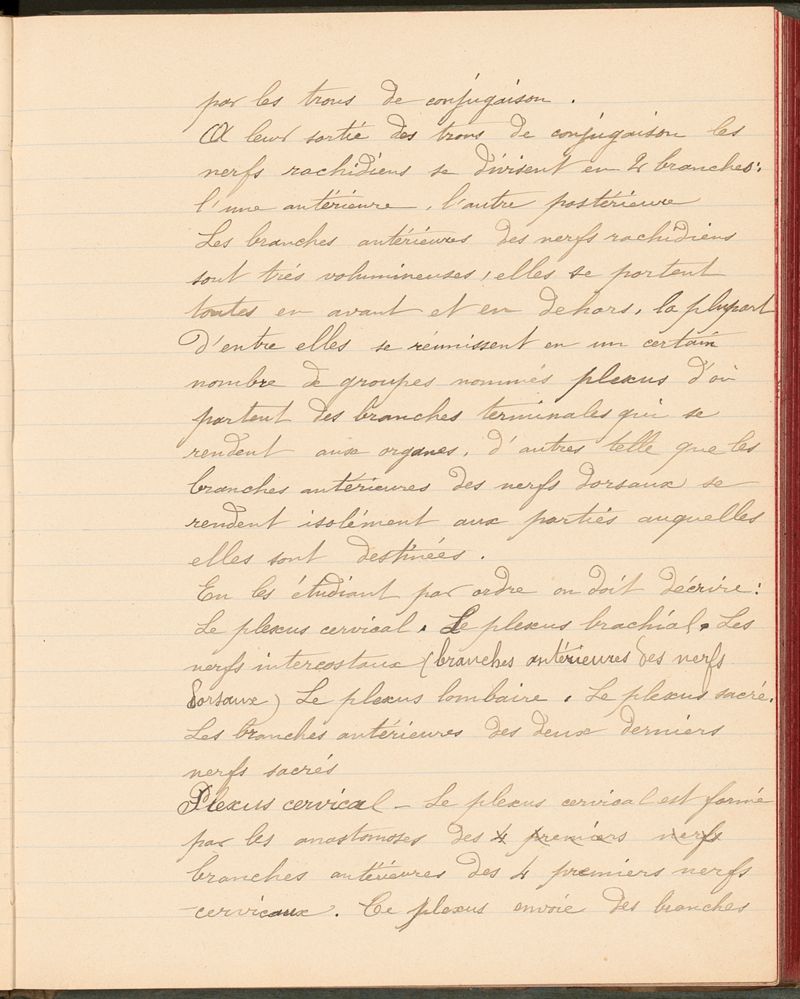 par les trous de conjugaison.
A leur sortie des trous de conjugaison les
nerfs rachidiens se divisent en 2 branches:
l'une antérieure, l'autre postérieure
Les branches antérieures des nerfs rachidiens
sont très volumineuses, elles se portent
toutes en avant et en dehors, la plupart
d'entre elles se réunissent en un certain
nombre de groupes nommés plexus d'où
partent des branches terminales qui se
rendent aux organes, d'autres telle que les
branches antérieures des nerfs dorsaux se
rendent isolément aux parties auquelles
elles sont destinées.
En les étudiant par ordre on doit décrire:
Le plexus cervical. Le plexus brachial. Les
nerfs intercostaux (branches antérieures des nerfs
dorsaux) Le plexus lombaire. Le plexus sacré.
Les branches antérieures des deux derniers
nerfs sacrés
Plexus cervical - Le plexus cervical est formé
par les anastomoses des 4 premiers nerfs
branches antérieures des 4 premiers nerfs
cervicaux. Ce plexus envoie des branches